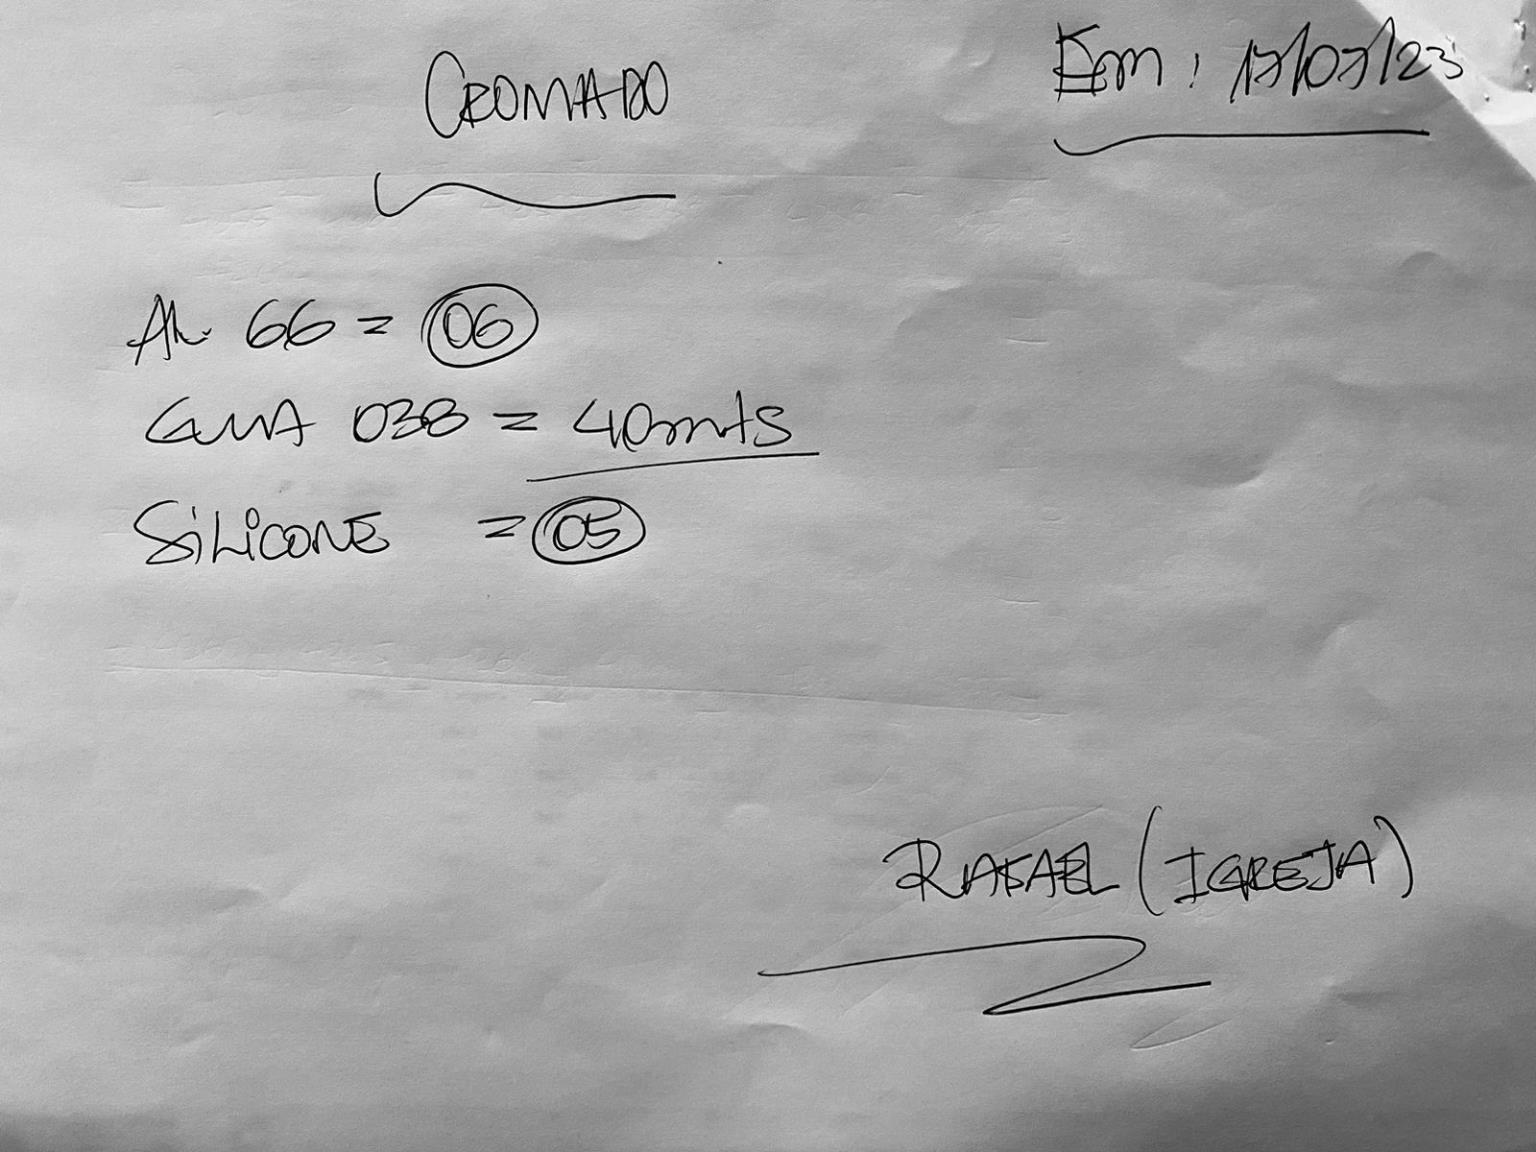 CROMADO
Em: 17/07/23
AL. 66 = 06
GUIA 038 = 40mts
SILICONE = 05
RAFAEL (IGREJA)